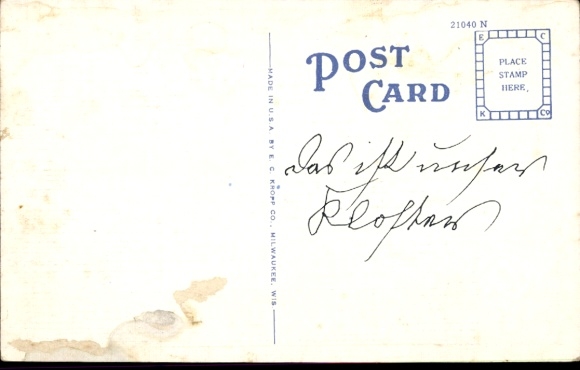 21040 N
POST
CARD
E C
PLACE
STAMP
HERE
K Co
MADE IN U.S.A. BY E. C. KROPP CO., MILWAUKEE, WIS.
Das ist unser
Kloster